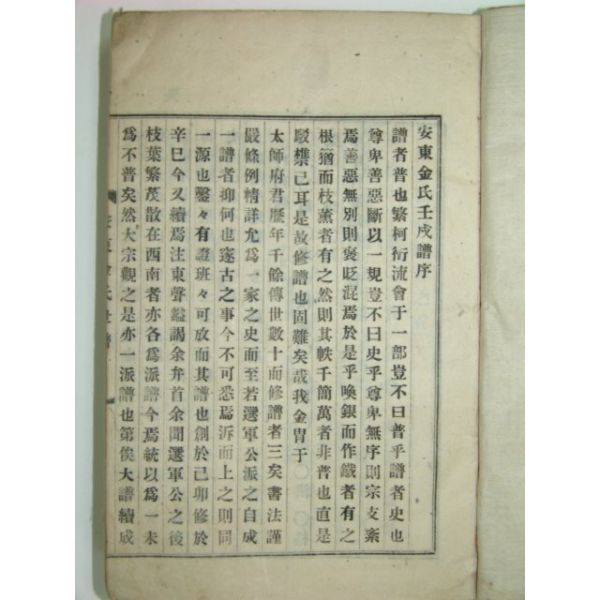 安東金氏壬戌譜序
譜者普也繁柯衍流會于一部豈不曰普乎譜者史也
尊卑善惡斷以一規豈不曰史乎尊卑無序則宗支紊
焉善惡無別則褒貶混焉於是乎喚銀而作鐵者有之
根猶而枝薰者有之然則其帙千簡萬者非普也直是
駁櫟已耳是故修譜也固難矣哉我金冑于
太師府君歷年千餘傳世數十而修譜者三矣書法謹
嚴條例精詳尤爲一家之史而至若選軍公派之自成
一譜者抑何也邃古之事今不可悉焉泝而上之則同
一源也鑿々有證班々可放而其譜也創於己卯修於
辛巳今又續焉注東聲鎰謁余弁首余聞選軍公之後
枝葉繁茂散在西南者亦各爲派譜今焉統以爲一未
爲不普矣然大宗觀之是亦一派譜也第俟大譜續成
安東金氏世譜